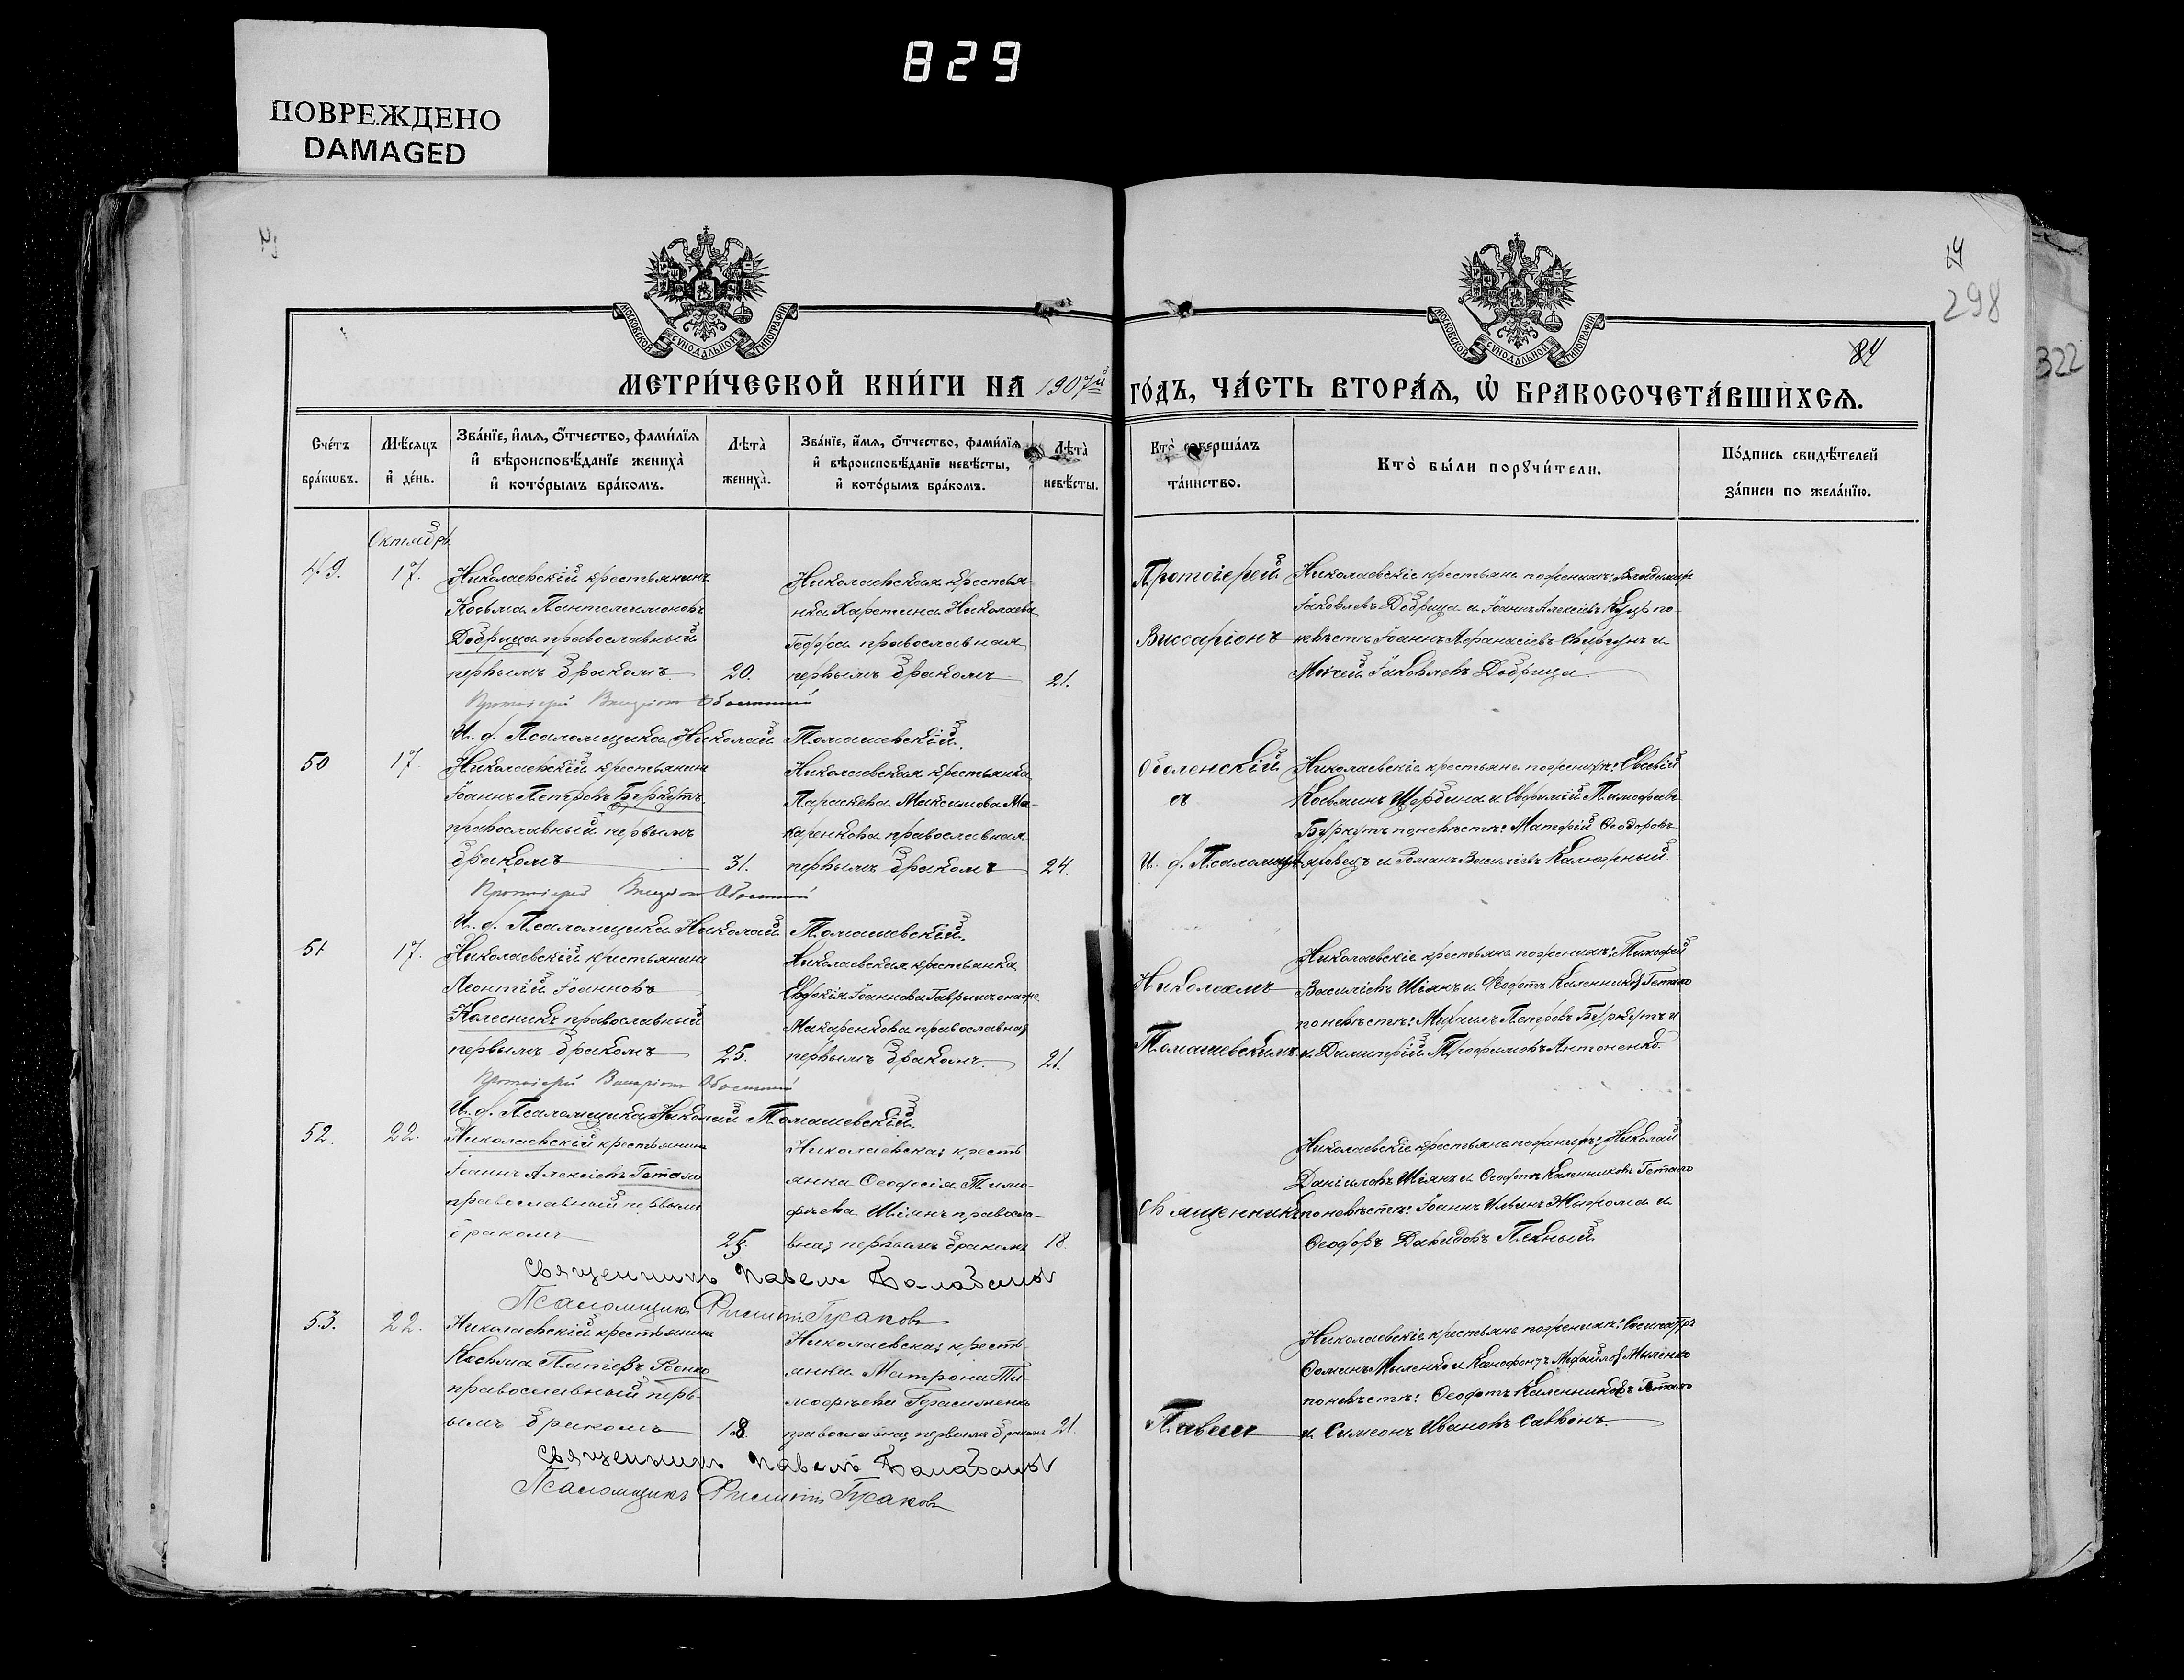 829
ПОВРЕЖДЕНО
DAMAGED
14
298
322
84
МОСКОВСКОЙ СУНОДАЛЬНОЙ ТИПОГРАФІИ
МОСКОВСКОЙ СУНОДАЛЬНОЙ ТИПОГРАФІИ
МЕТРИ́ЧЕСКОЙ КНИ́ГИ НА 1907й ГО́ДЪ, ЧА́СТЬ ВТОРА́Ѧ, Ѽ БРАКОСОЧЕТА́ВШИХСѦ.
Сче́тъ бра́кѡвъ.
Мѣ́сѧцъ и҆ де́нь.
Зва́нїе, и҆́мѧ, ѻ҆́тчество, фами́лїѧ
и҆ вѣроисповѣ́данїе жениха̀
и҆ кото́рымъ бра́комъ.
Лѣта̀ жениха̀.
Зва́нїе, и҆́мѧ, ѻ҆́тчество, фами́лїѧ
и҆ вѣроисповѣ́данїе невѣ́сты,
и҆ кото́рымъ бра́комъ.
Лѣта̀ невѣ́сты.
Кто̀ соверша́лъ
та́инство.
Кто̀ бы́ли порꙋчи́тели.
По́дпись свидѣ́телей
за́писи по жела́нїю.
Октябрь
49.
17.
Николаевскій крестьянинъ
Косьма Пантелеимоновъ
Добрица православный
первымъ бракомъ
20.
Николаевская крестья-
нка Харетина Николаева
православная
первымъ бракомъ
21.
Протоіерей
Виссаріонъ
Николаевскіе крестьяне по женихѣ: Владимиръ
Іаковлевъ Добрица и Іоаннъ Алексіевъ по
невѣстѣ Іоаннъ Афанасіевъ и
Моисей Іаковлевъ Добрица
Протоіерей Виссаріонъ Оболенскій
И. д. Псаломщика Николай Томашевскій.
50
17.
Николаевскій крестьянинъ
Іоаннъ Петровъ Беркутъ
православный первымъ
бракомъ
31.
Николаевская крестьянка
Параскева Максимова Ма-
каренкова православная
первымъ бракомъ
24.
Оболенскій
съ
И. д. Псаломщ.
Николаевскіе крестьяне по женихѣ: Евсевій
Косьминъ Щербина и Евфимій Тимофеевъ
Беркутъ по невѣстѣ: Матфій Феодоровъ
и Романъ Василіевъ Калюжный.
Протоіерей Виссаріонъ Оболенскій
И. д. Псаломщика Николай Томашевскій.
51
17.
Николаевскій крестьянинъ
Леонтій Іоанновъ
Колесникъ православный
первымъ бракомъ
25.
Николаевская крестьянка
Евдокія Іоаннова
Макаренкова православная
первымъ бракомъ.
21.
Николаемъ
Томашевскимъ
Николаевскіе крестьяне по женихѣ: Тимофей
Василіевъ Шіянъ и Феодотъ Каленниковъ Гетало
по невѣстѣ: Михаилъ Петровъ Беркутъ и
и Димитрій Трофимовъ Антоненко.
Протоіерей Виссаріонъ Оболенскій
И. д. Псаломщика Николай Томашевскій.
52.
22.
Николаевскій крестьянинъ
Іоаннъ Алексіевъ Гетало
православный первымъ
бракомъ
25.
Николаевская кресть
янка Феодосія Тимо-
фѣева Шіянъ правосла-
вная первымъ бракомъ
18.
Священникъ
Николаевскіе крестьяне по женихѣ: Николай
Даніиловъ Шіянъ и Феодотъ Каленниковъ Гетало
по невѣстѣ: Іоаннъ Ильинъ и
Феодоръ Давидовъ
Священникъ Павелъ
Псаломщикъ Филиппъ Гусаковъ
53.
22.
Николаевскій крестьянинъ
Косьма
православный перв-
ымъ бракомъ
18.
Николаевская кресть
янка Матрона Ти-
мофѣева Герасименко
православная первымъ бракомъ
21.
Павелъ
Николаевскіе крестьяне по женихѣ:
и Ксенофонтъ Михайловъ
по невѣстѣ: Феодотъ Каленниковъ Гетало
и Симеонъ Ивановъ Саввонъ.
Священникъ Павелъ
Псаломщикъ Филиппъ Гусаковъ